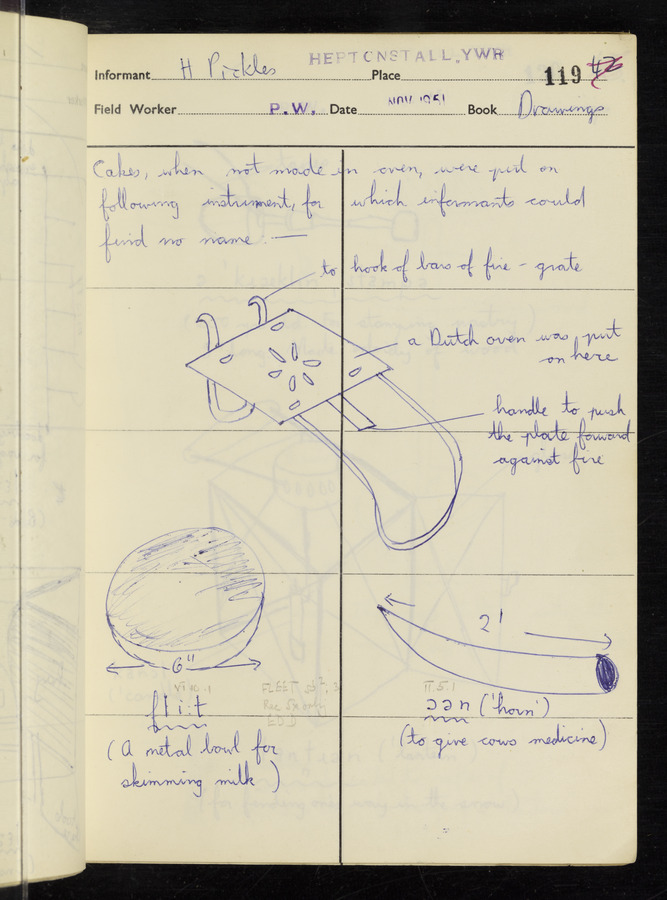 HEPTONSTALL, YWR
Informant H Pickles Place 119
Field Worker P.W. Date NOV 1951 Book Drawings
Cakes, when not made in oven, were put on
following instrument, for which informants could
find no name: —
to hook of bars of fire-grate
a Dutch oven was put
on here
handle to push
the plate forward
against fire
2'
6"
VI 10.1
II.5.1
fli:t
ɔən ('horn')
(A metal bowl for
skimming milk)
(to give cows medicine)